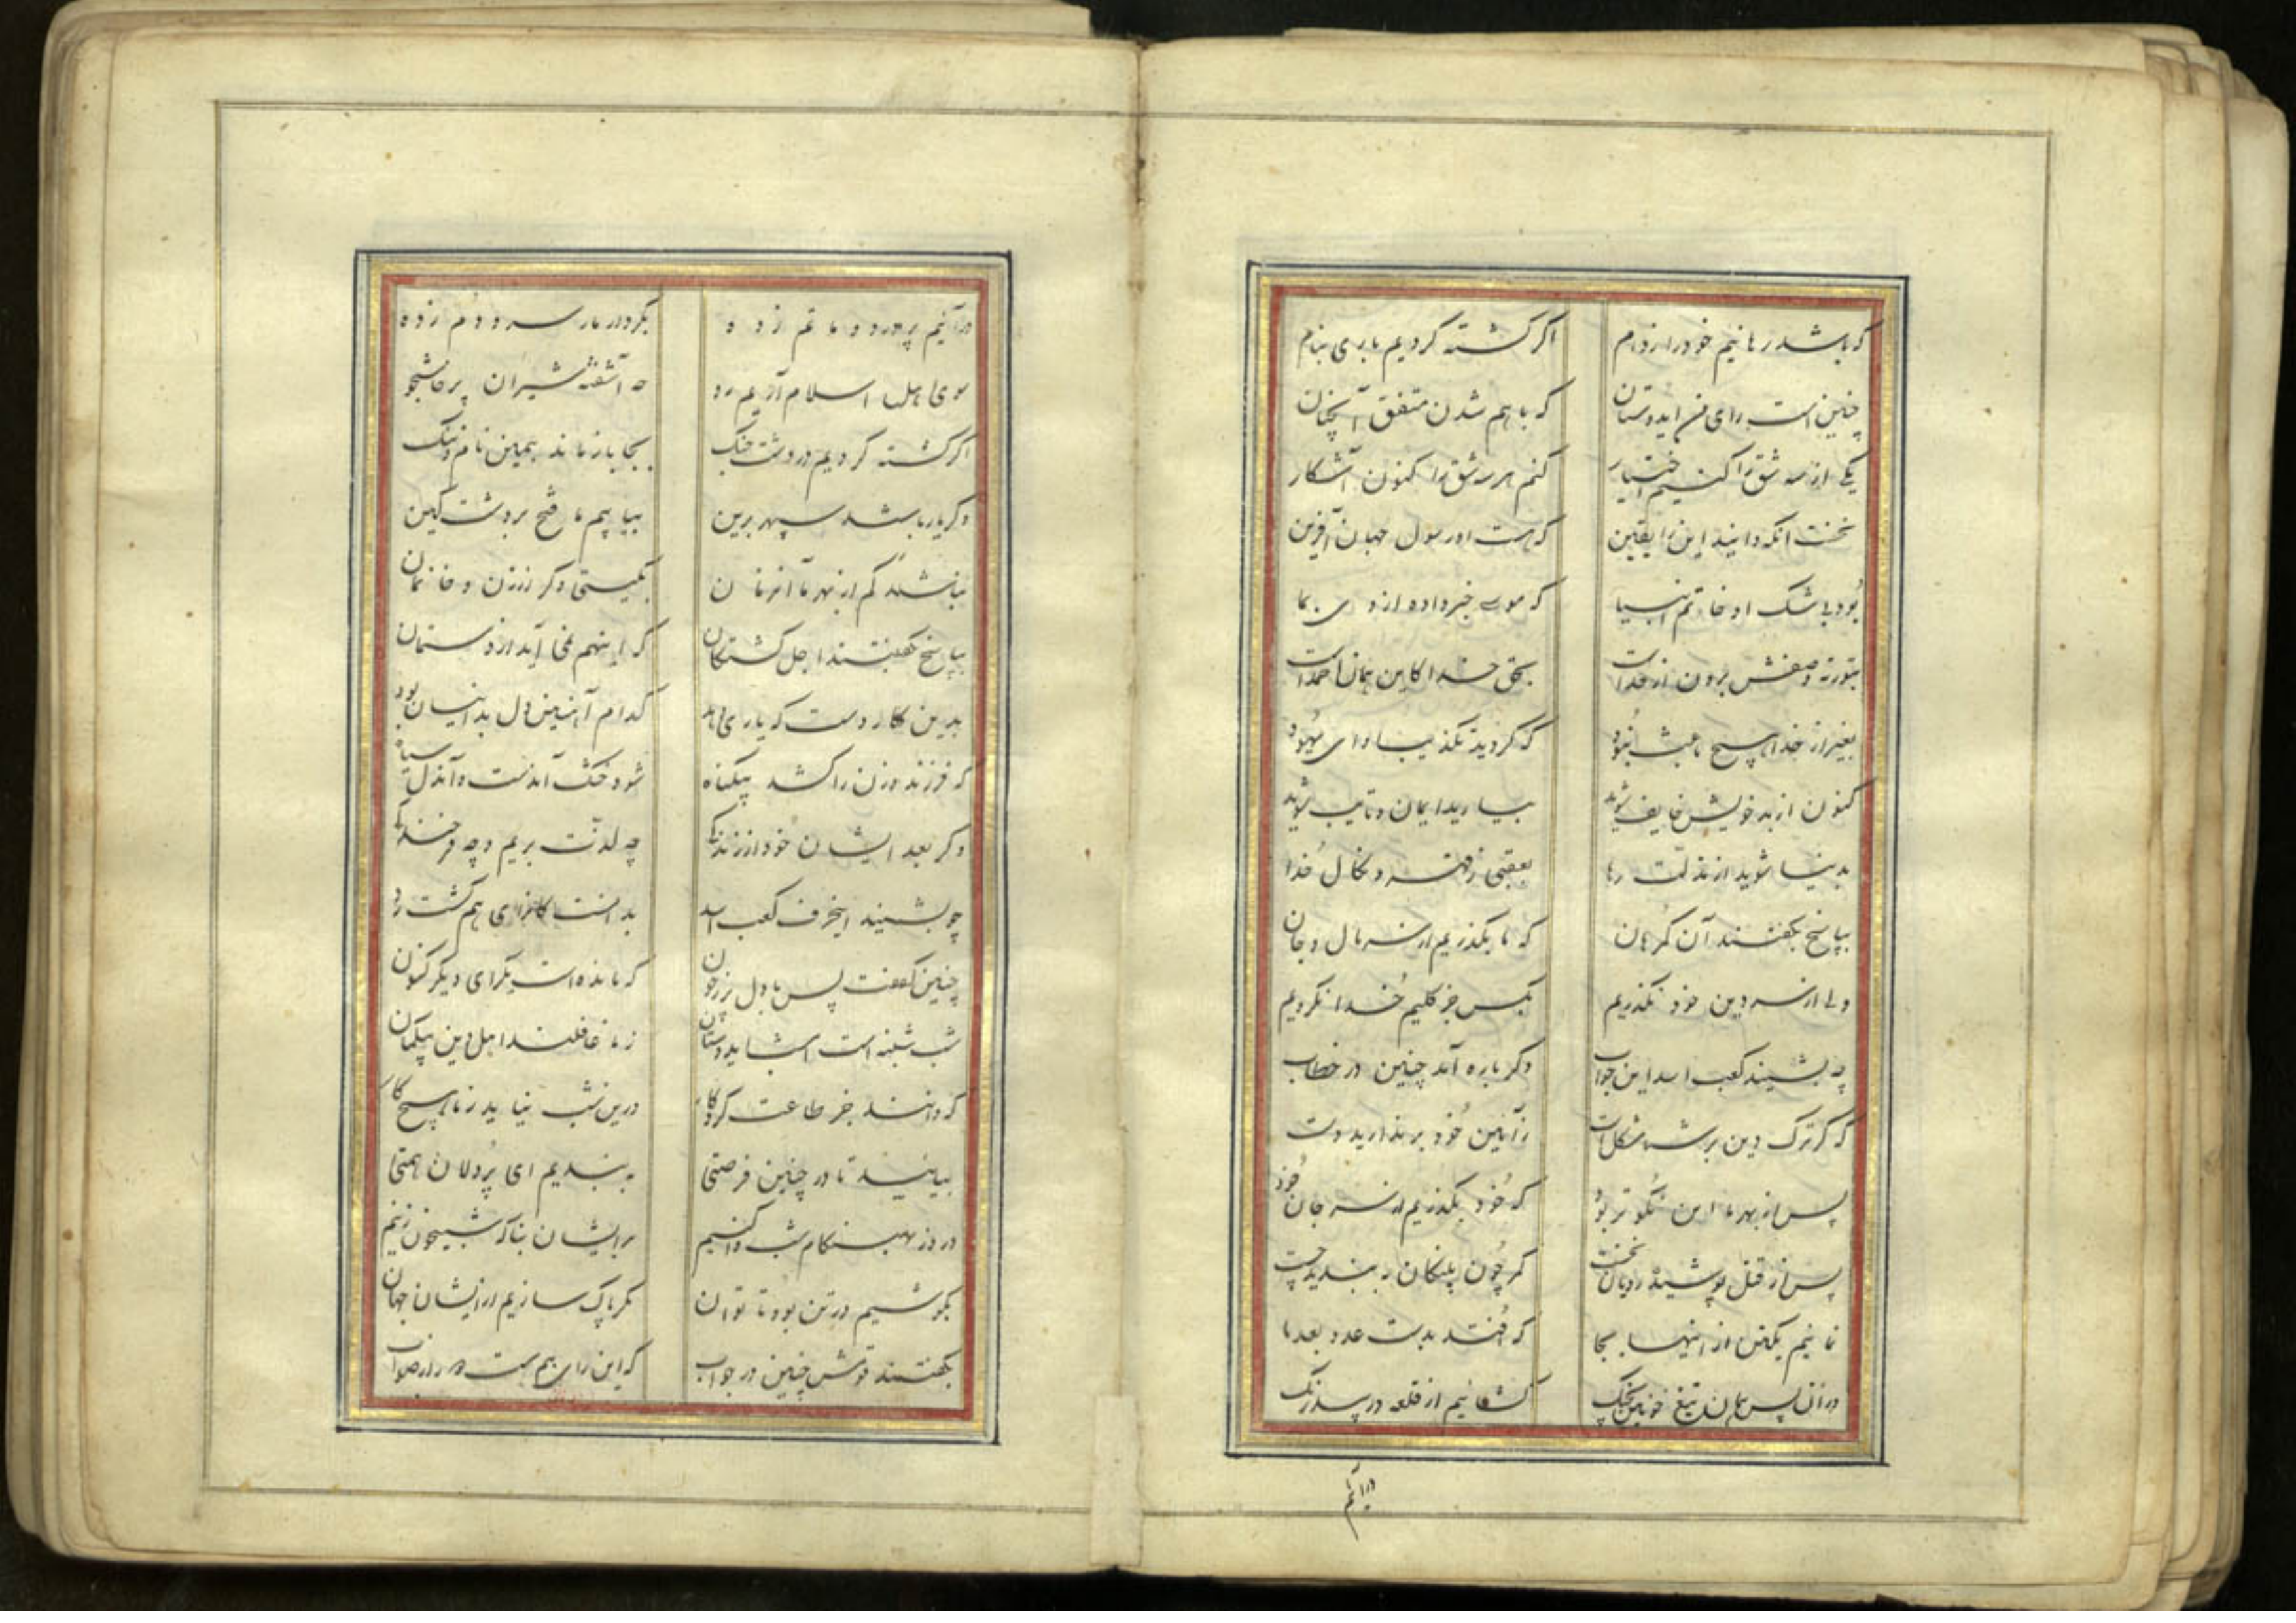 که باشد رهانیم خود را ز دام اگر کشته کردیم باری بنام
چنین است رای من ای دوستان که باهم شدن متفق آنچنان
یکی از سه شق را کنیم اختیار کنم هر سه شق را کنون آشکار
نخست آنکه دانید این را یقین که هست او رسول جهان آفرین
بود بی شک او خاتم انبیا که موسی خبر داده از وی بما
بتوریة وصفش برون از حداست بحق خدا کاین همان احمد است
بغیر از خدا هیچ باعث نبود که کردید تکذیب او ای یهود
کنون از بد خویش خایف شوید بیارید ایمان و تایب شوید
بدنیا شوید از مذلت رها بعقبی ز قهر و نکال خدا
بپاسخ بگفتند آن گمرهان که ما بگذریم از سر مال و جان
ولی از سر دین خود نگذریم بکس جز کلیم خدا نگرویم
چه بشنید کعب اسد این جواب دگر باره آمد چنین در خطاب
که گر ترک دین بر شما مشکل است ز آیین خود بر ندارید دست
پس از بهر ما این نکوتر بود که خود بگذریم از سر جان خود
پس از قتل پوشیده رویان نخست کمر چون پلنگان ببندید چست
نمانیم یکتن از اینها بجا که افتد بدست عدو بعد ما
در آن پس همان تیغ خونین بچنگ گشائیم از قلعه در بیدرنگ
درآئیم
درآئیم پر درد و ماتم زده بکردار مار سر و دم زده
سوی اهل اسلام آریم رو چه آشفته شیران پرخاشجو
اگر کشته کردیم در دشت جنگ بجا باز ماند همین نام و ننگ
وگر یار باشد سپهر برین بیابیم ما فتح بر دشت کین
نباشند کم از بهر ما آن زمان بگیتی دگر از زن و خانمان
بپاسخ بگفتند اجل گشتگان که اینهم نمی آید از دستمان
بدین کار دست که یاری دهد کدام آهنین دل بدانسان بود
که فرزند و زن را کشد بیگناه شود خشک آن دست و آن دل سیاه
دگر بعد ایشان خود از زندگی چه لذت بریم و چه فرخندگی
چو بشنید اینحرف کعب اسد بدانست کانرای هم گشت رد
چنین گفت پس با دل پر ز خون که مانده است یکرای دیگر کنون
شب شنبه است امشب ای دوستان ز ما غافلند اهل دین بیگمان
که دانند جز طاعت کردگار درین شب نیاید ز ما هیچ کار
بیائید تا در چنین فرصتی ببندیم ای پردلان همتی
در دز بهنگام شب وا کنیم بر ایشان بناگه شبیخون زنیم
بکوشیم در تن بود تا توان مگر پاک سازیم از ایشان جهان
بگفتند قومش چنین در جواب که این رای هم هست دور از صواب